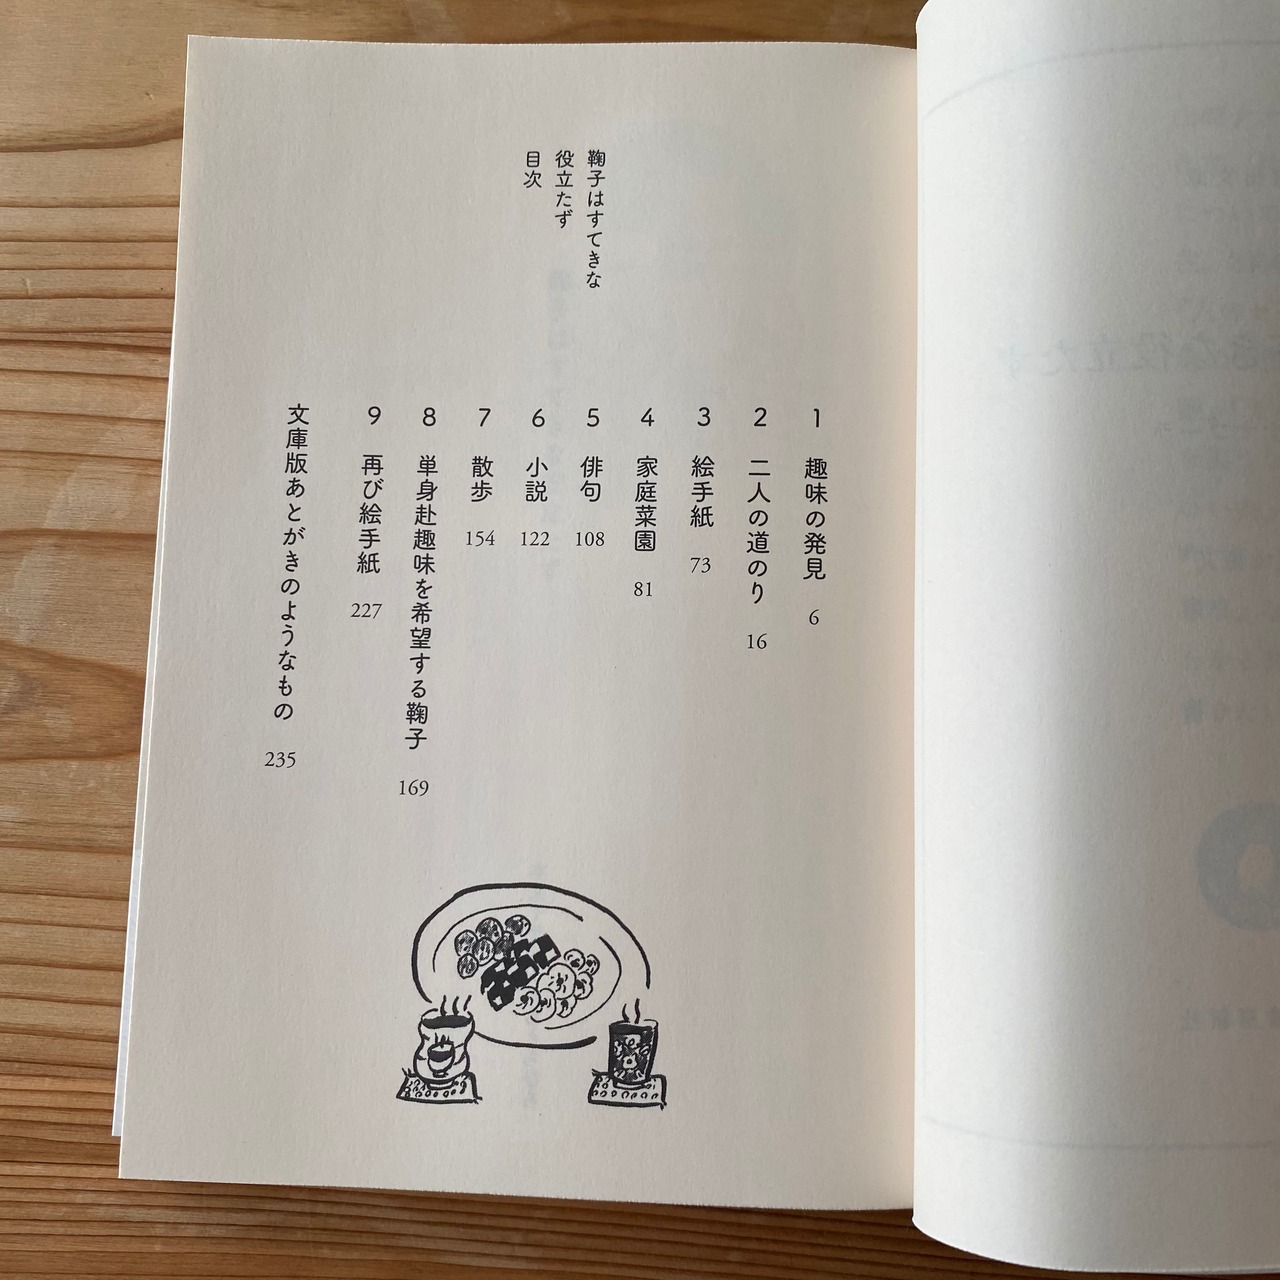 鞠子はすてきな
役立たず
目次
1 趣味の発見 6
2 二人の道のり 16
3 絵手紙 73
4 家庭菜園 81
5 俳句 108
6 小説 122
7 散歩 154
8 単身赴趣味を希望する鞠子 169
9 再び絵手紙 227
文庫版あとがきのようなもの 235